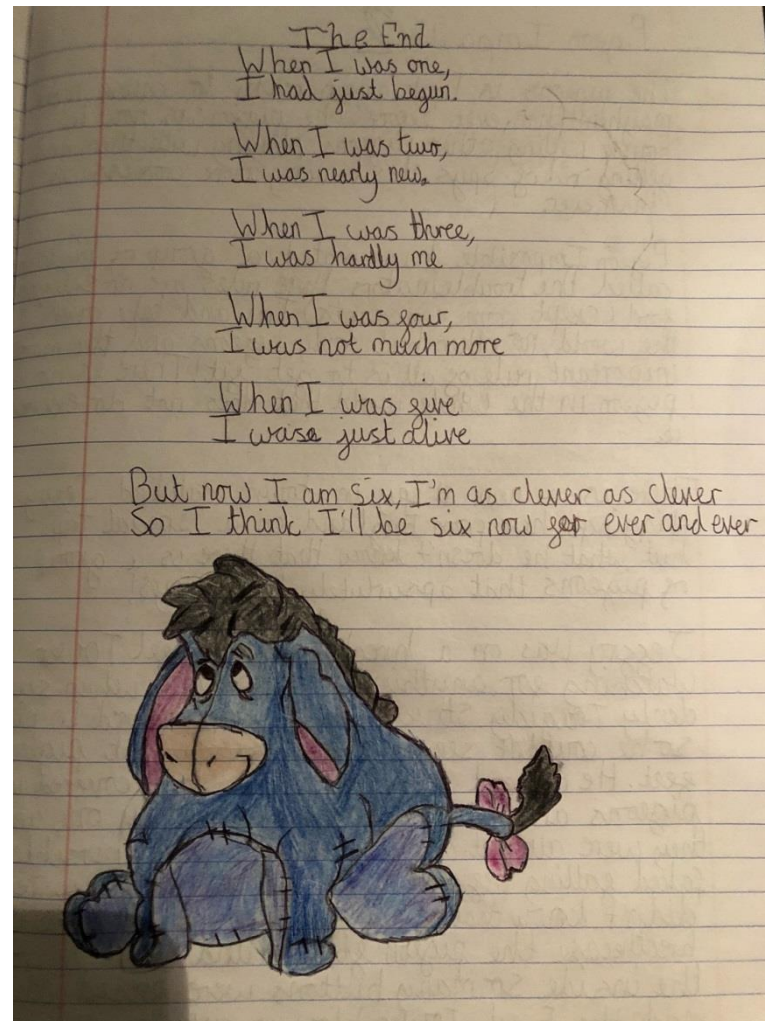 The End
When I was one,
I had just begun.
When I was two,
I was nearly new.
When I was three,
I was hardly me
When I was four,
I was not much more
When I was five
I was just alive
But now I am six, I'm as clever as clever
So I think I'll be six now for ever and ever